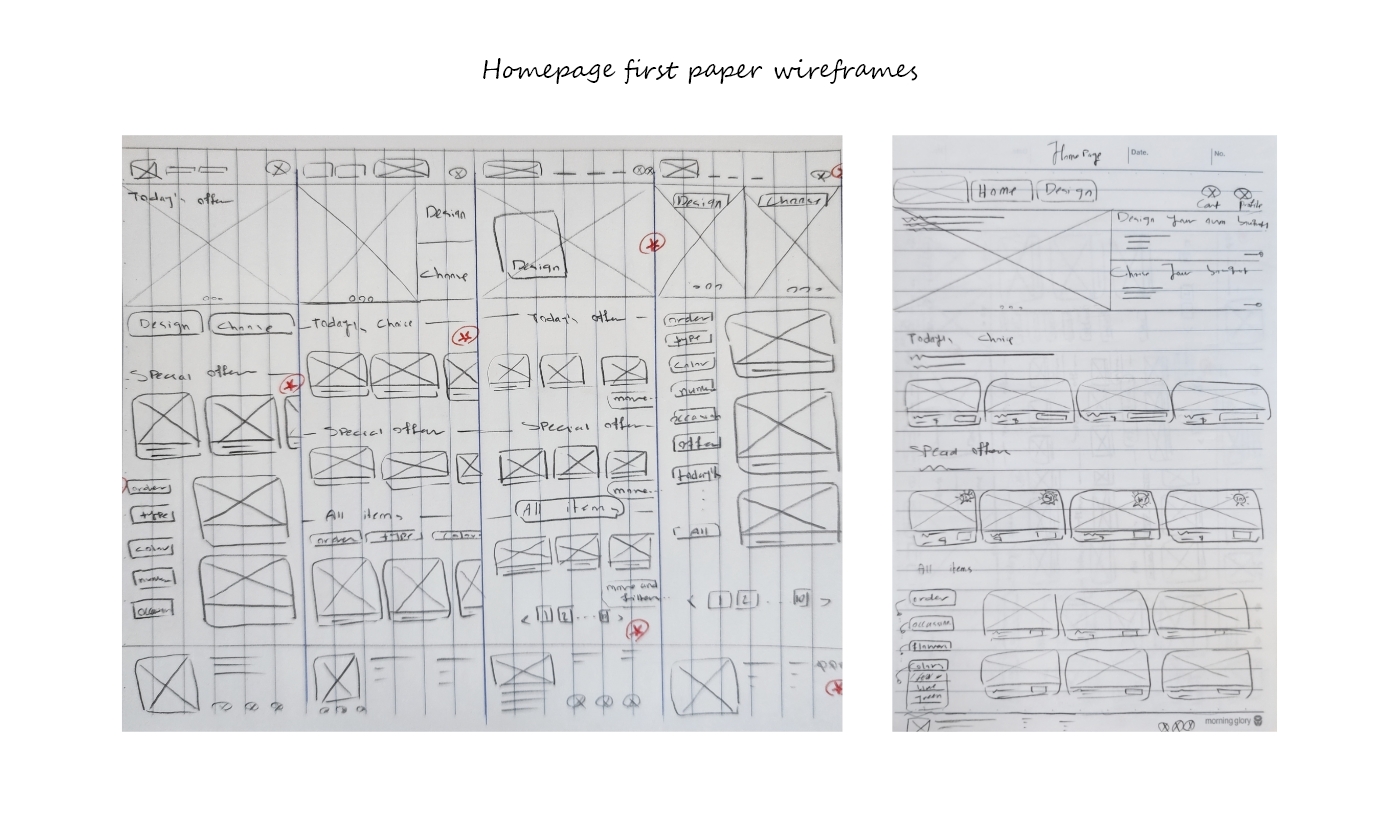 Homepage first paper wireframes
Today's offer
Design
Choose
Special offer
order
type
color
Design
Choose
Today's Choice
Special offer
All items
order
type
Color
Design
Today's offer
more..
Special offer
more..
All items
more and
< 1 2 ... >
Design
Choose
order
type
Color
offer
today's
All
< 1 2 ... 10 >
Home Page
Date.
No.
Home
Design
Cart
Profile
Design your own
Choose your
Today's Choice
Special offer
All items
order
occasion
flower
Color
morning glory